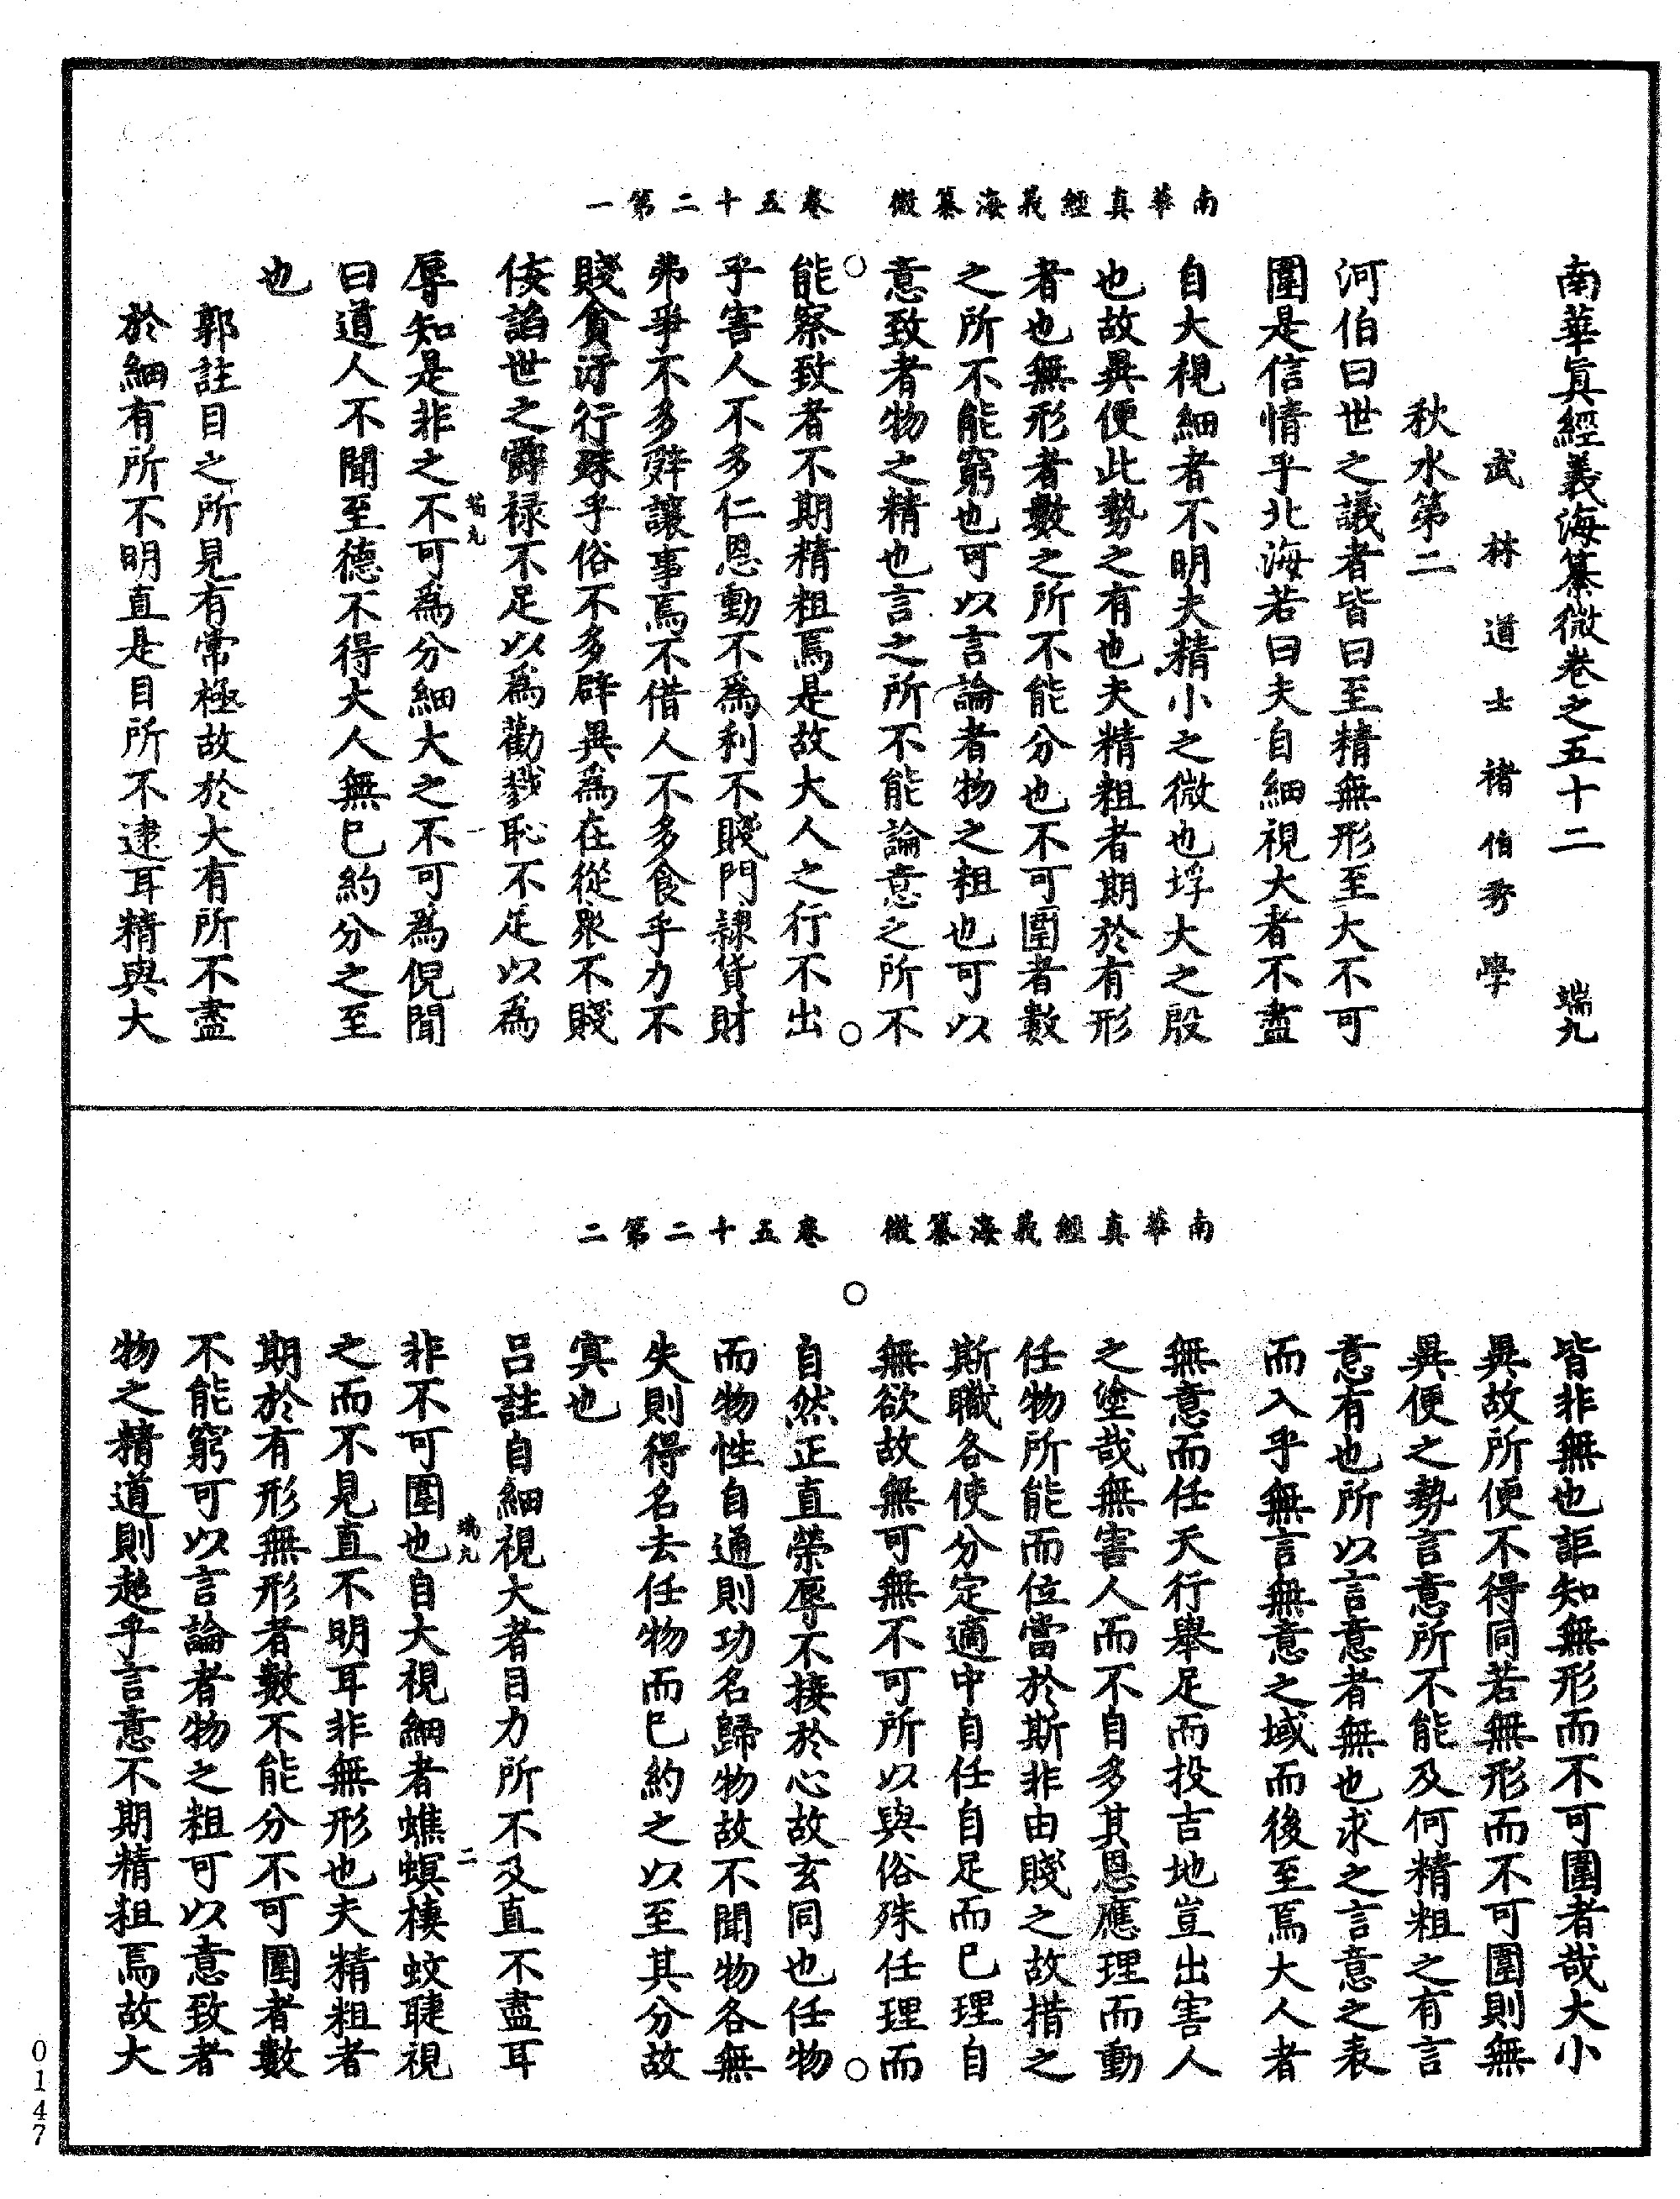 南華真經義海纂微　卷五十二第一
南華眞經義海纂微卷之五十二　端九
武林道士褚伯秀學
秋水第二
河伯曰世之議者皆曰至精無形至大不可
圍是信情乎北海若曰夫自細視大者不盡
自大視細者不明夫精小之微也垺大之殷
也故異便此勢之有也夫精粗者期於有形
者也無形者數之所不能分也不可圍者數
之所不能窮也可以言論者物之粗也可以
意致者物之精也言之所不能論意之所不
能察致者不期精粗焉是故大人之行不出
乎害人不多仁恩動不爲利不賤門隸貨財
弗爭不多辭讓事焉不借人不多食乎力不
賤貪汙行殊乎俗不多辟異爲在從衆不賤
佞諂世之爵禄不足以爲勸戮恥不足以爲
辱知是非之不可爲分細大之不可爲倪聞
曰道人不聞至德不得大人無已約分之至
也
郭註目之所見有常極故於大有所不盡
於細有所不明直是目所不逮耳精與大
南華真經義海纂微　卷五十二第二
皆非無也詎知無形而不可圍者哉大小
異故所便不得同若無形而不可圍則無
異便之勢言意所不能及何精粗之有言
意有也所以言意者無也求之言意之表
而入乎無言無意之域而後至焉大人者
無意而任天行舉足而投吉地豈出害人
之塗哉無害人而不自多其恩應理而動
任物所能而位當於斯非由賤之故措之
斯職各使分定適中自任自足而已理自
無欲故無可無不可所以與俗殊任理而
自然正直榮辱不接於心故玄同也任物
而物性自通則功名歸物故不聞物各無
失則得名去任物而已約之以至其分故
㝠也
呂註自細視大者目力所不及直不盡耳
非不可圍也自大視細者蟭螟棲蚊睫視
之而不見直不明耳非無形也夫精粗者
期於有形無形者數不能分不可圍者數
不能窮可以言論者物之粗可以意致者
物之精道則超乎言意不期精粗焉故大
0147